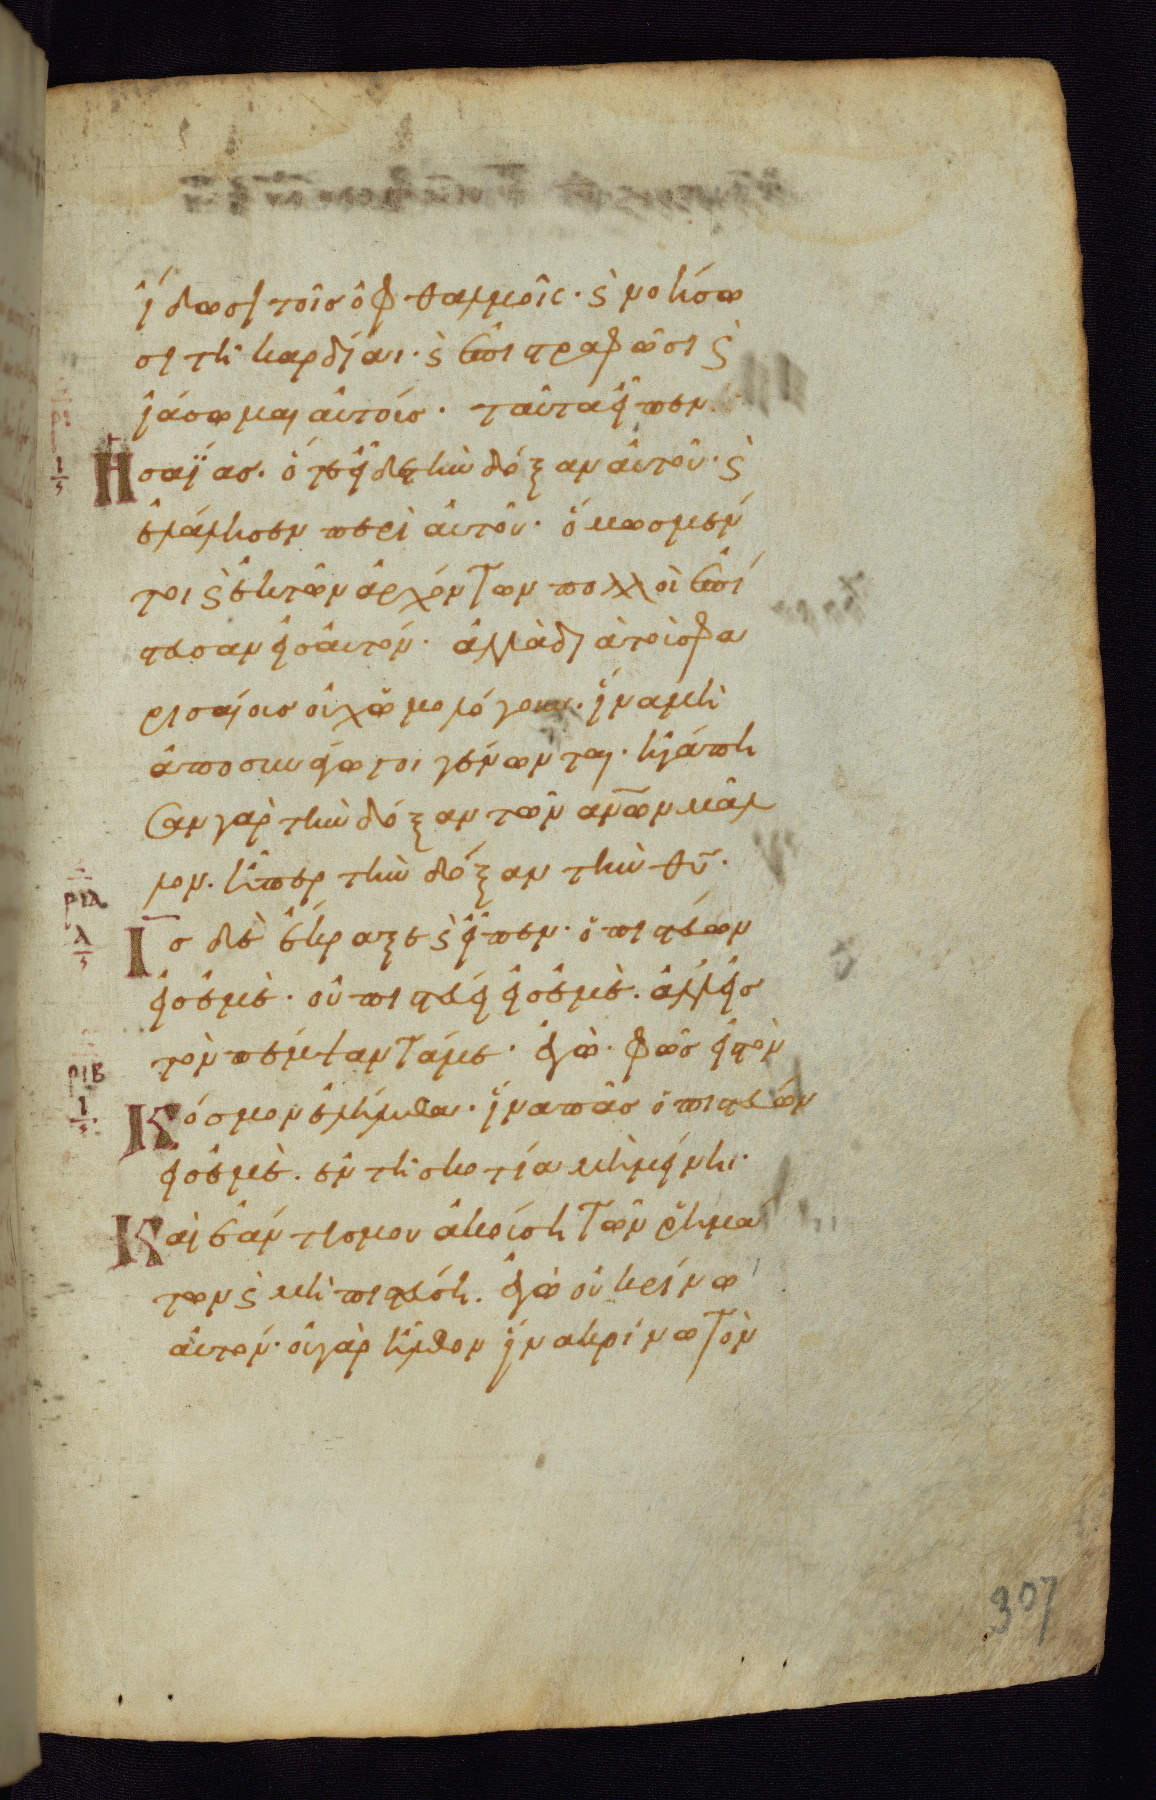 ἴδωσι τοῖς ὀφθαλμοῖς· ϛ̀ νοήσω
σι τῆ καρδίαι· ϛ̀ ἐπιστραφῶσι ϛ̀
ἰάσωμαι αὐτοίς· ταῦτα εἶπεν
Ἡσαΐας· ὅτε εἶδε τὴν δόξαν αὐτοῦ· ϛ̀
ἐλάλησεν περὶ αὐτοῦ· ὅμωσ μέν
τοι ϛ̀ ἐκ τῶν ἀρχόντων πολλοὶ ἐπί
στευσαν εἰσ αὐτόν· ἀλλὰ διὰ τοὺσ φα
ρισαίουσ οὐχ ὡμολόγουν· ἵνα μὴ
ἀποσυνάγωγοι γένωνται· ἠγάπη
σαν γὰρ τὴν δόξαν τῶν ἀν̅ων μᾶλ
λον· ἤπερ τὴν δόξαν τὴν θ̅υ·
ρια
λ
ς
Ι̅σ δὲ ἔκραξε ϛ̀ εἶπεν· ὁ πιστεύων
εἰσ ἐμὲ· οὐ πιστεύει εἰσ ἐμὲ· ἀλλ εἰσ
τὸν πέμψαντά με· ἐγὼ φῶσ εἰς τὸν
ριβ
ι
Κόσμον ἐλήλυθα· ἵνα πᾶσ ὁ πιστεύων
εἰσ ἐμὲ· ἐν τῆ σκοτία μὴ μείνηι·
Καὶ ἐάν τισ μου ἀκούση τῶν ῥημα
των ϛ̀ μὴ πιστεύση· ἐγὼ οὐ κρίνω
αὐτόν· οὐ γὰρ ἦλθον ἵνα κρίνω τὸν
307